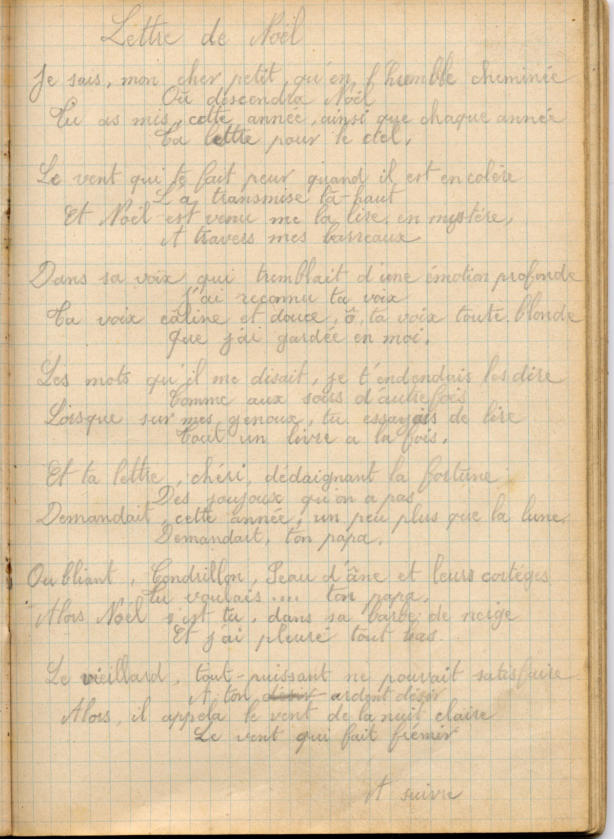 Lettre de Noël
Je sais, mon cher petit, qu'en l'humble cheminée
Où descendra Noël
Tu as mis, cette année, ainsi que chaque année
Ta lettre pour le ciel.
Le vent qui te fait peur quand il est en colère
L'a transmise là-haut
Et Noël est venu me la lire, en mystère,
A travers mes barreaux.
Dans sa voix qui tremblait d'une émotion profonde
J'ai reconnu ta voix
Ta voix câline et douce, ô, ta voix toute blonde
Que j'ai gardée en moi.
Les mots qu'il me disait, je t'endendais les dire
Comme aux soirs d'autrefois
Lorsque sur mes genoux, tu essayais de lire
Tout un livre a la fois.
Et ta lettre, chéri, dédaignant la fortune
Des joujoux qu'on a pas
Demandait, cette année, un peu plus que la lune,
Demandait, ton papa.
Oubliant, Cendrillon, Peau d'âne et leurs cortèges
Tu voulais ... ton papa.
Alors Noël s'est tu, dans sa barbe de neige
Et j'ai pleuré tout bas
Le vieillard, tout-puissant ne pouvait satisfaire
A ton désir ardent désir
Alors, il appela le vent de la nuit claire
Le vent qui fait frémir
A suivre